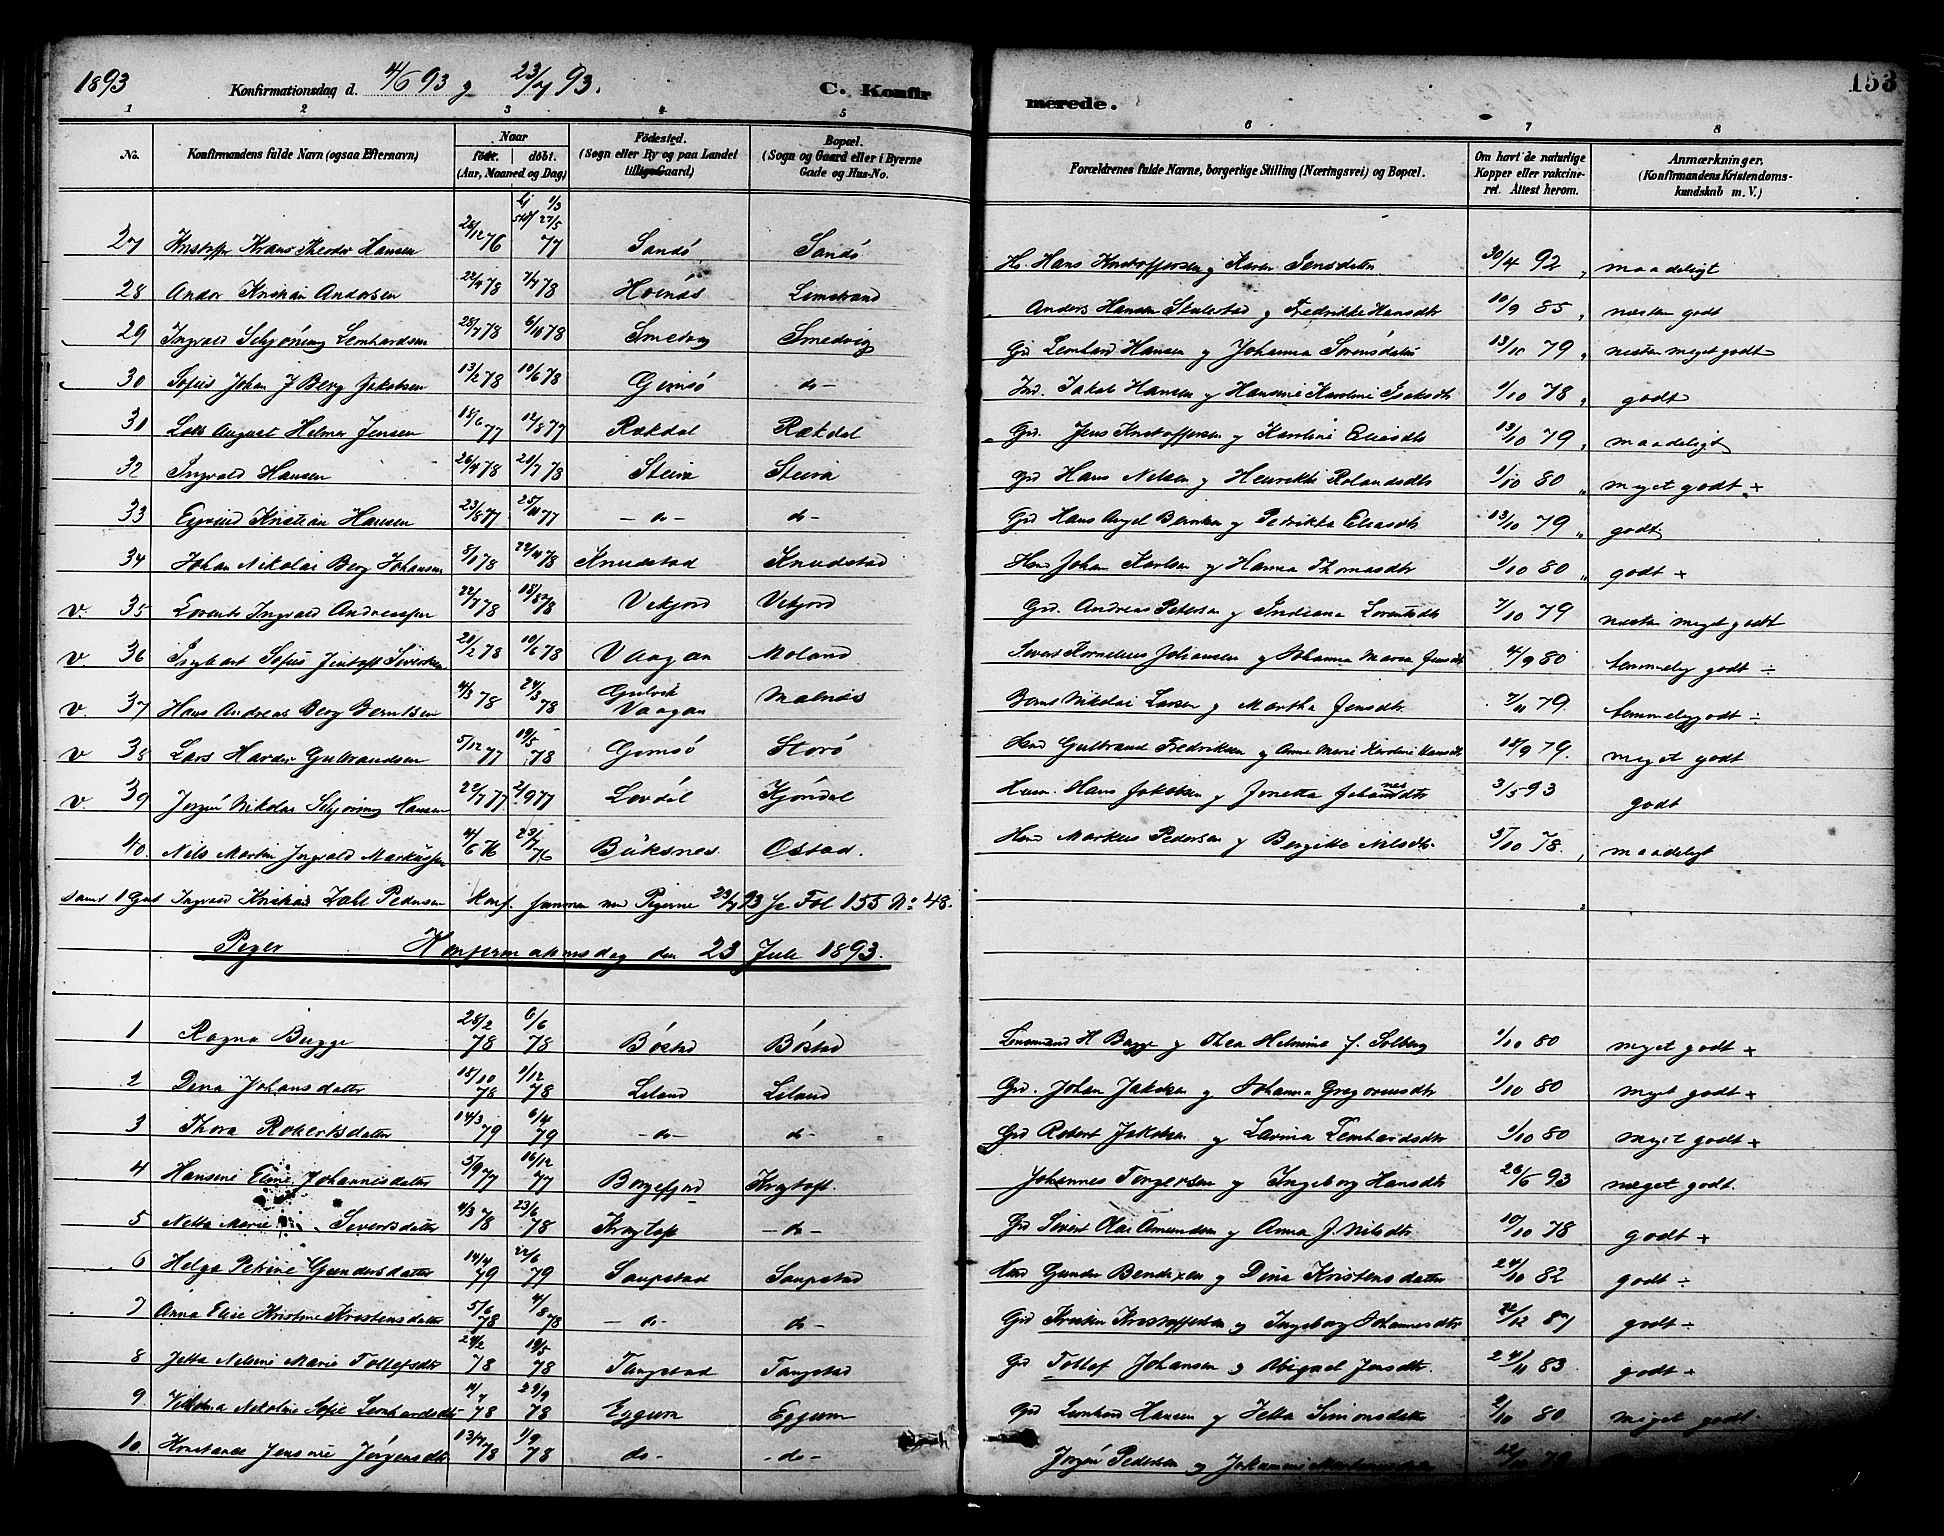 1893 Konfirmationsdag d. 4/6 93 g 23/7 93. C. Konfir merede. 153
1 2 3 4 5 6 7 8
No. Konfirmandens fulde Navn (ogsaa Efternavn) Naar født. døbt. (Aar, Maaned og Dag) Fødested. (Sogn eller By og paa Landet tillige Gaard) Bopæl. (Sogn og Gaard eller i Byerne Gade og Hus-No. Forældrenes fulde Navne, borgerlige Stilling (Næringsvei) og Bopæl. Om havt de naturlige Kopper eller vakcineret. Attest herom. Anmærkninger. (Konfirmandens Kristendomskundskab m. V.)
27 Hansen 26/12 76 1/3 27/5 77 Sandö Sandö Hans Kristoffersen g Karen Jensdatter 30/4 92 maadeligt
28 Andor Kristian Andersen 78 78 Limstrand Anders Hansen g Fredrikke Hansdtr 10/9 85 næsten godt
29 Ingvald Schjöning Lenhardsen 28/7 78 6/10 78 Smedvig Smedvig Gd Lenhard Hansen g Johanna Sörensdatter 13/10 79 næsten meget godt
30 Sofus Johan J Berg Jakobsen 13/2 78 10/6 78 Gimsö do Jakob Hansen g Hansine Karoline Isaksdtr 1/10 78 godt
31 Lars August Helmer Jensen 18/6 77 12/8 77 Rækdal Rækdal Gd. Jens Kristoffersen g Karoline Eliasdtr 13/10 79 maadeligt
32 Ingvald Hansen 26/4 78 21/7 78 Steira Steira Gd Hans Nilsen g Henrikke Rolandsdtr 1/10 80 meget godt +
33 Eyvind Kristian Hansen 23/8 77 25/11 77 — do — do — Gd Hans Angel Berntsen g Petrikka Eliasdtr 13/10 79 godt
34 Johan Nikolai Berg Johansen 8/1 78 22/4 78 Knudstad Knudstad Johan Karlsen g Hanna Thomasdtr 1/10 80 godt +
v. 35 Lorents Ingvald Andreassen 22/7 78 18/8 78 Vikjord Vikjord Gd. Andreas Petersen g Indiana Lorentsdtr 7/10 79 næsten meget godt
v. 36 Sofus Jentoft Sivertsen 21/2 78 10/6 78 Vaagan Moland Sivert Kornelius Johansen g Johanna Maria Jensdtr 4/9 80 temmelig godt ÷
v. 37 Hans Andreas Berg Berntsen 4/3 78 24/3 78 Gulvik Vaagan Malnæs Nikolai Larsen g Martha Jensdtr. 7/11 79. temmelig godt ÷
v 38 Lars Harder Gulbrandsen 5/12 77 19/5 78 Gimsö Storö Gulbrand Fredriksen g Anne Marie Karoline Hansdtr 18/9 79. meget godt
v. 39 Jörgen Nikolai Schjöning Hansen 22/7 77 2/9 77 Lovdal Kjöndal Hans Jakobsen g Jonetta Johannesdtr 3/5 93 godt
40. Nils Martin Ingvald Markussen 4/6 76 23/7 76 Buksnes Ostad. Markus Pedersen g Bergitte Nilsdtr. 5/10 78. maadeligt
samt 1 Gut Ingvald Kristian Dahl Pedersen Konf. sammen med Pigerne 23/7 93 se Fol 155 No 48.
Piger Konfirmationsdag den 23 Juli 1893.
1 Ragna Bugge 28/2 78 6/6 78 Böstad Böstad Lensmand H Bugge g Thea Helmine f. Solberg 1/10 80 meget godt +
2 Dina Johansdatter 18/10 78 1/12 78 Liland Liland Gd. Johan Jakobsen g Johanna Gregoriusdtr 1/10 80 meget godt +
3 Thora Robertsdatter 14/3 79 6/4 79 — do — do — Gd Robert Jakobsen g Lavina Lenhardsdtr 1/10 80 meget godt +
4 Hansine Eline Johannesdatter 5/9 77 16/12 77 Borgefjord Krystoft. Johannes Torgersen g Ingeborg Hansdtr 26/6 93 meget godt.
5 Netta Marie Sivertsdatter 4/3 78 23/6 78 — do — Gd Sivert Olai Amundsen g Anna J. Nilsdtr 10/10 78 godt +
6 Helga Petrine Gundersdatter 14/4 79 22/6 79 Saupstad Saupstad Gunder Bendixen g Dina Kristensdatter 24/10 82 godt ÷
7 Anna Elise Kristine Kristensdatter 5/6 78 4/8 78 — do — do — Gd Kristen Kristoffersen g Ingeborg Johannesdtr 22/12 87 godt ÷
8 Jetta Nelsine Marie Tollefsdtr 24/2 78 19/5 78 Tangstad Tangstad Gd Tollef Johansen g Abigael Jensdtr. 24/11 83 godt +
9. Nikoline Sofie Lenhardsdtr 11/7 78 29/9 78 Eggum Eggum Gd Lenhard Hansen g Jetta Simonsdatter 2/10 80 meget godt.
10. Konstance Jensine Jörgensdtr 13/7 78 1/9 78 do — - do — Jörgen Pedersen g 79